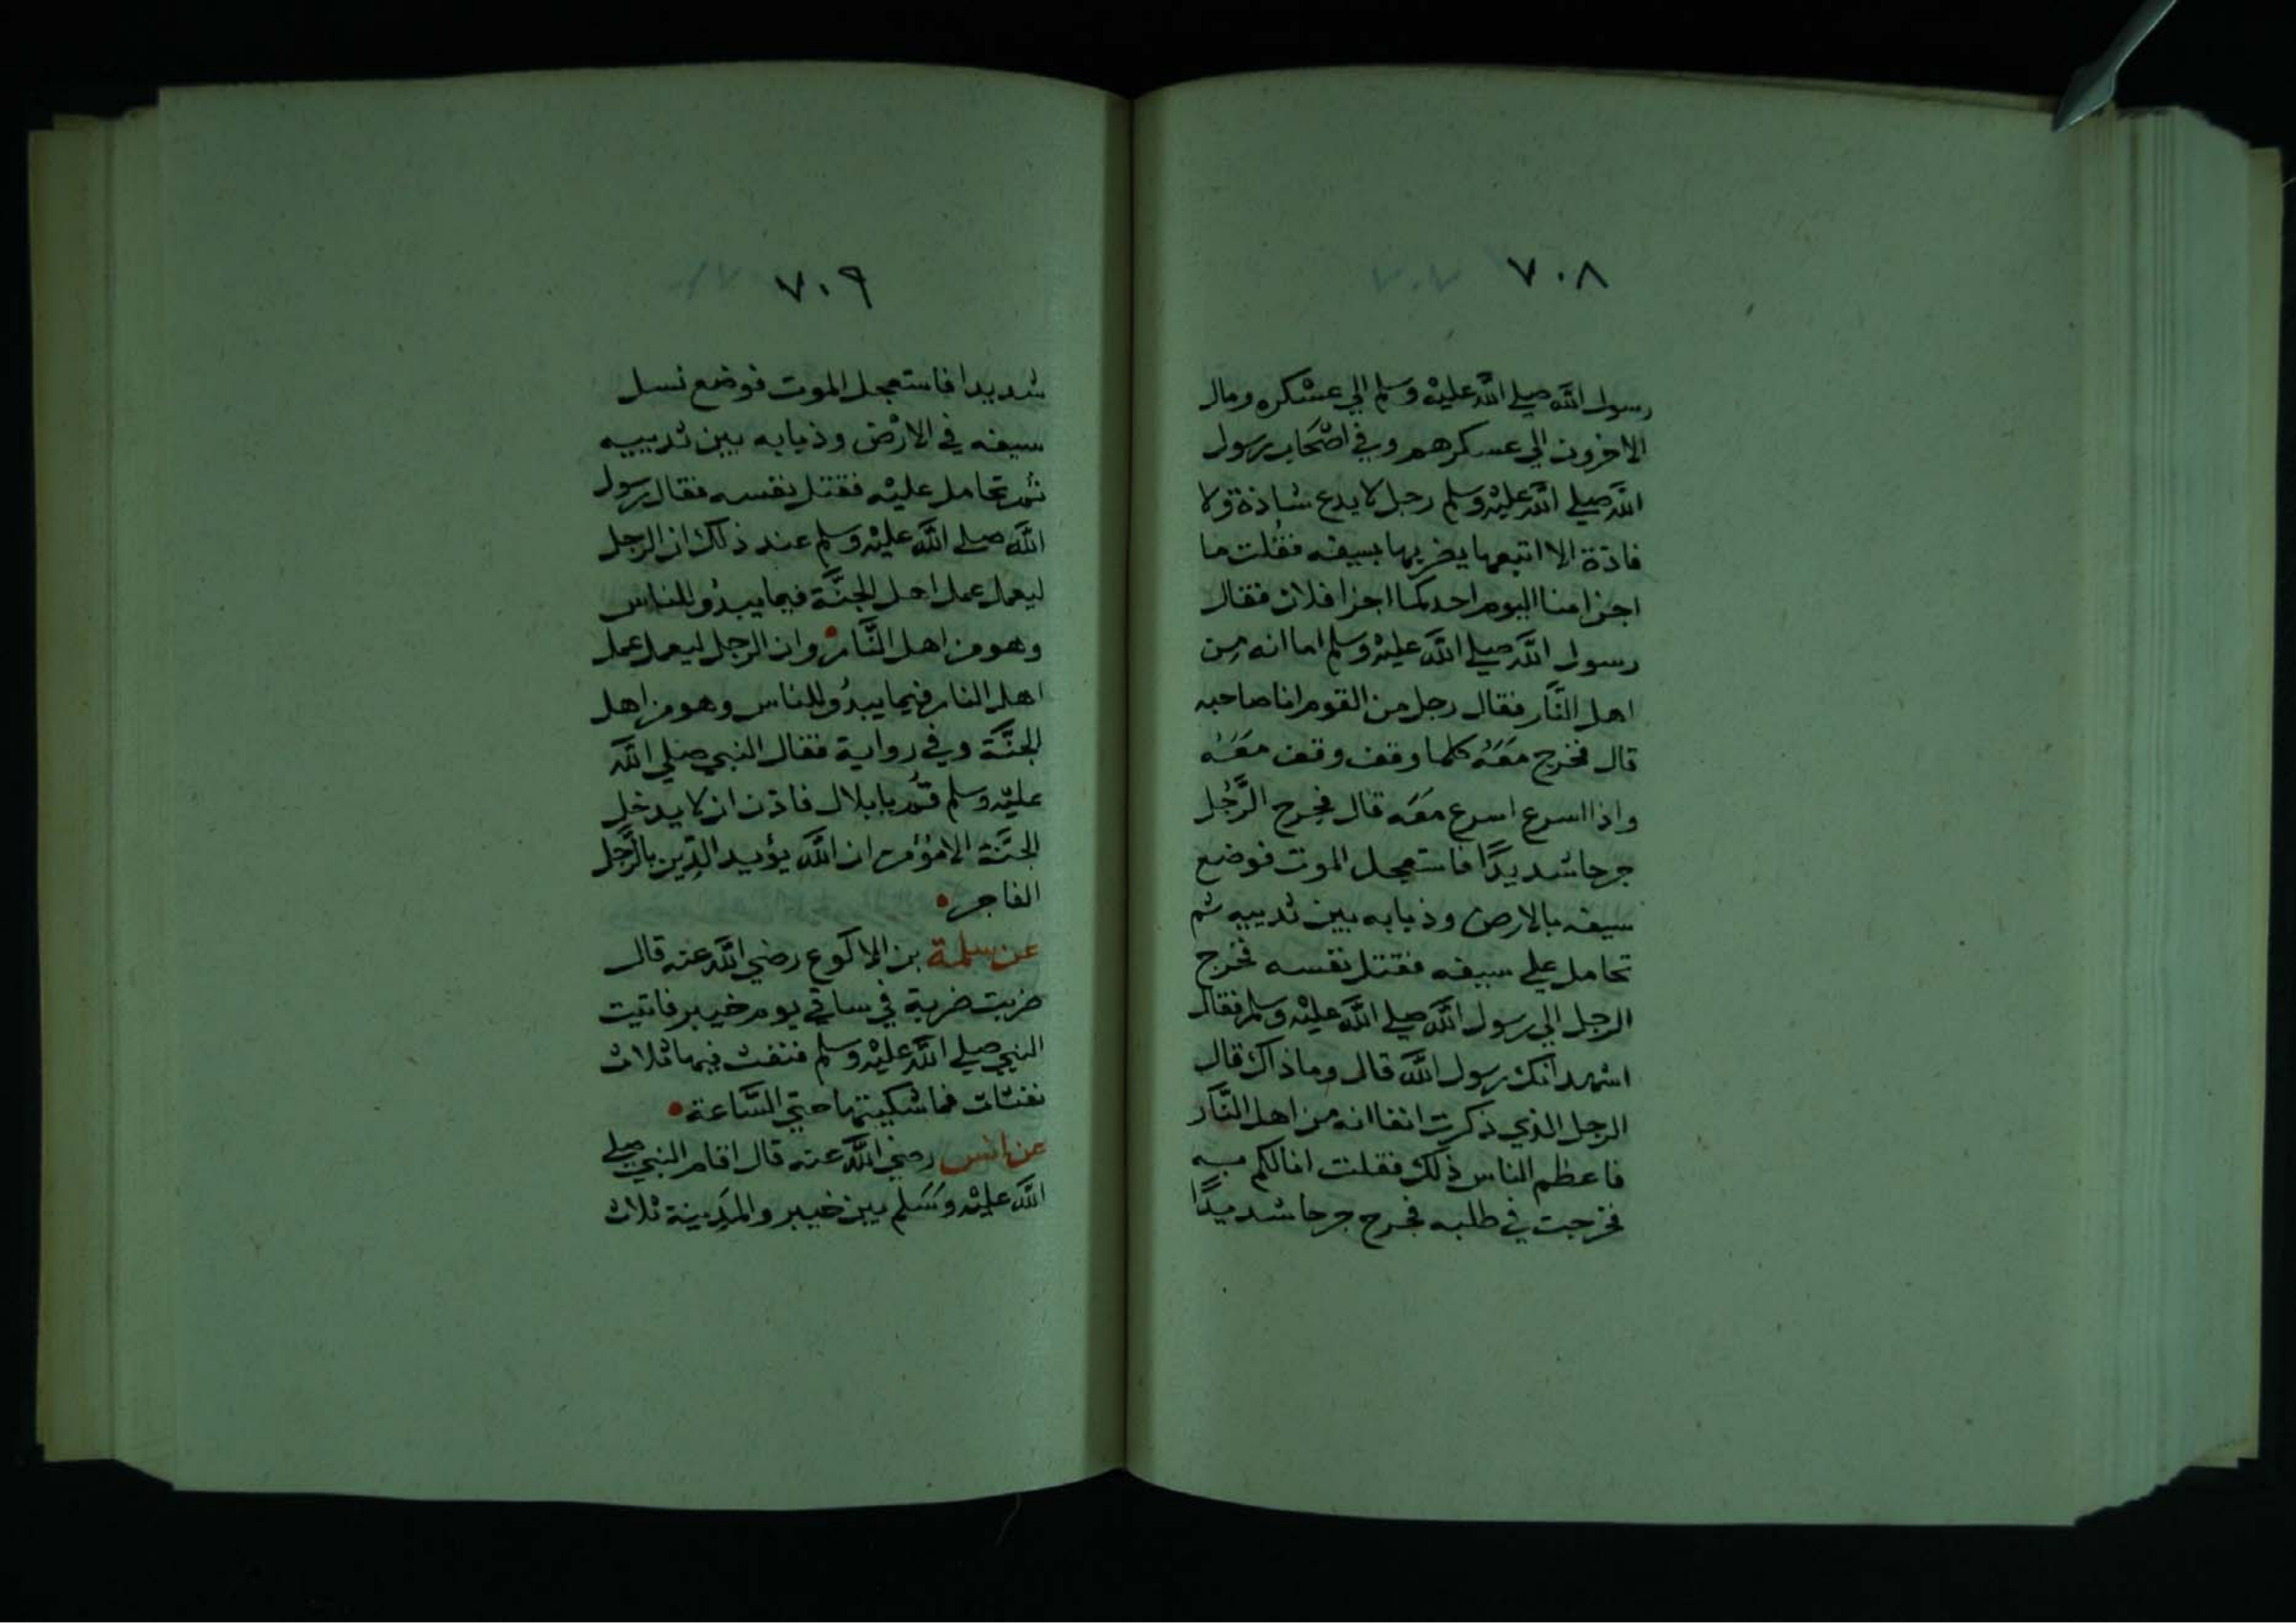 ٧٠٨
رسول الله صلي الله عليه وسلم الي عسكره ومال
الاخرون الي عسكرهم وفي اصحاب رسول
الله صلي الله عليه وسلم رجل لا يدع شاذة ولا
فاذة الا اتبعها يضربها بسيفه فقلت ما
اجزا منا اليوم احد كما اجزا فلان فقال
رسول الله صلي الله عليه وسلم اما انه من
اهل النار فقال رجل من القوم انا صاحبه
قال فخرج معه كلما وقف وقف معه
واذا اسرع اسرع معه قال فجرح الرجل
جرحا شديدا فاستعجل الموت فوضع
سيفه بالارض وذبابه بين ثدييه ثم
تحامل علي سيفه فقتل نفسه فخرج
الرجل الي رسول الله صلي الله عليه وسلم فقال
اشهد انك رسول الله قال وما ذاك قال
الرجل الذي ذكرت انفا انه من اهل النار
فاعظم الناس ذلك فقلت انا لكم به
فخرجت في طلبه فجرح جرحا شديدا
٧٠٩
شديدا فاستعجل الموت فوضع نسل
سيفه في الارض وذبابه بين ثدييه
ثم تحامل عليه فقتل نفسه فقال رسول
الله صلي الله عليه وسلم عند ذلك ان الرجل
ليعمل عمل اهل الجنة فيما يبدو للناس
وهو من اهل النار وان الرجل ليعمل عمل
اهل النار فيما يبدو للناس وهو من اهل
الجنة وفي رواية فقال النبي صلي الله
عليه وسلم قم يا بلال فاذن ان لا يدخل
الجنة الا مؤمن ان الله يؤيد الدين بالرجل
الفاجر
عن سلمة بن الاكوع رضي الله عنه قال
ضربت ضربة في ساقي يوم خيبر فاتيت
النبي صلي الله عليه وسلم فنفث فيها ثلاث
نفثات فما شكيتها حتي الساعة
عن انس رضي الله عنه قال اقام النبي صلي
الله عليه وسلم بين خيبر والمدينة ثلاث